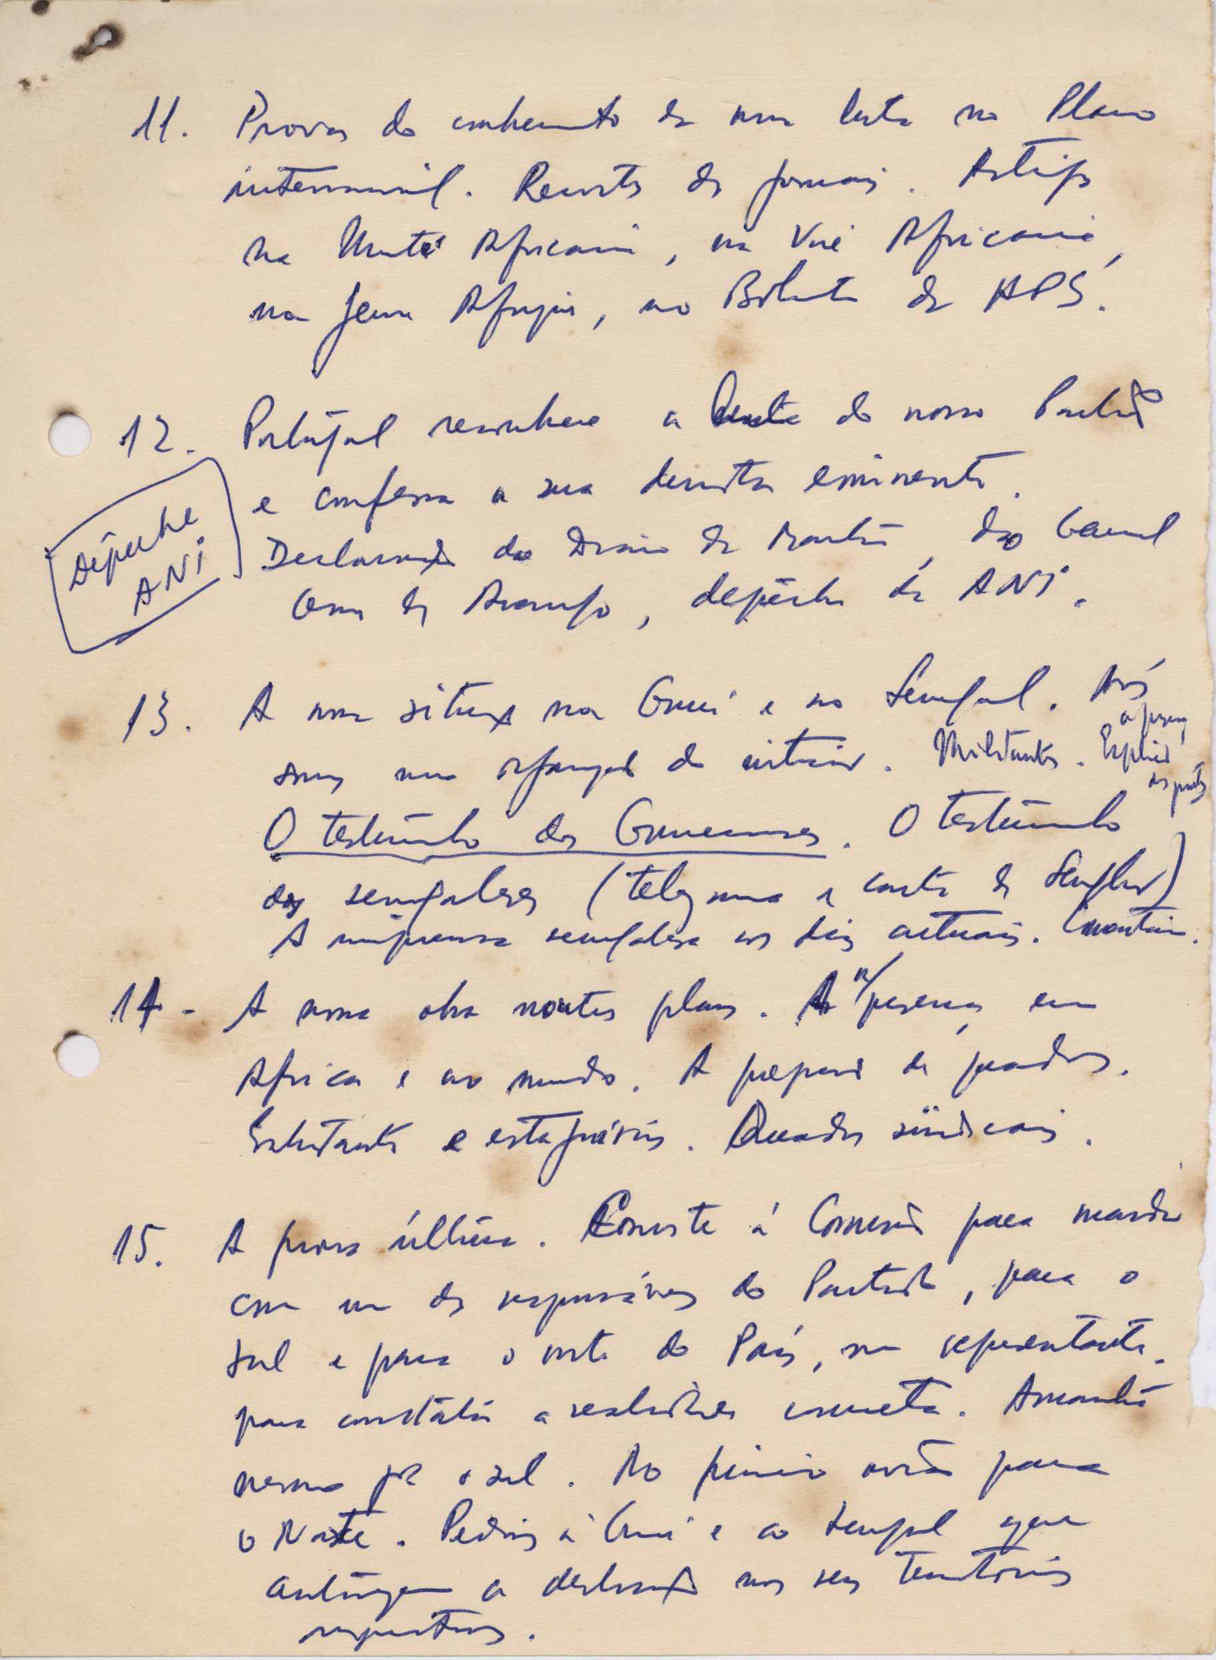 11. Provas do conhecimento da nossa luta no Plano
internacional. Recortes de jornais. Artigos
na Unité Africaine, na Voie Africaine,
na Jeune Afrique, no Boletim da APS.
12. Portugal reconhece a luta do nosso Partido
e confessa a sua derrota eminente.
Declarações do Diário da Manhã, do General
de Araujo, dépêche da ANI.
Dépêche
ANI
13. A nossa situação na Guiné e no Sénégal. Nós
somos uma organização do interior. Militantes.
O testemunho dos Guineenses. O testemunho
dos senegaleses (telegrama e carta de Senghor)
A imprensa senegalesa nos dias actuais.
14 - A nossa obra noutros planos. A n/ presença em
Africa e no mundo. A preparação de quadros.
Estudantes e estagiários. Quadros sindicais.
15. A prova última. Convite à Comissão para mandar
com um dos responsáveis do Partido, para o
sul e para o norte do País, um representante
para constatar a realidade concreta. Amanhã
mesmo para o sul. No primeiro avião para
o Norte. Pedimos à Guiné e ao Senegal que
autorizem a deslocação nos seus territórios
respectivos.